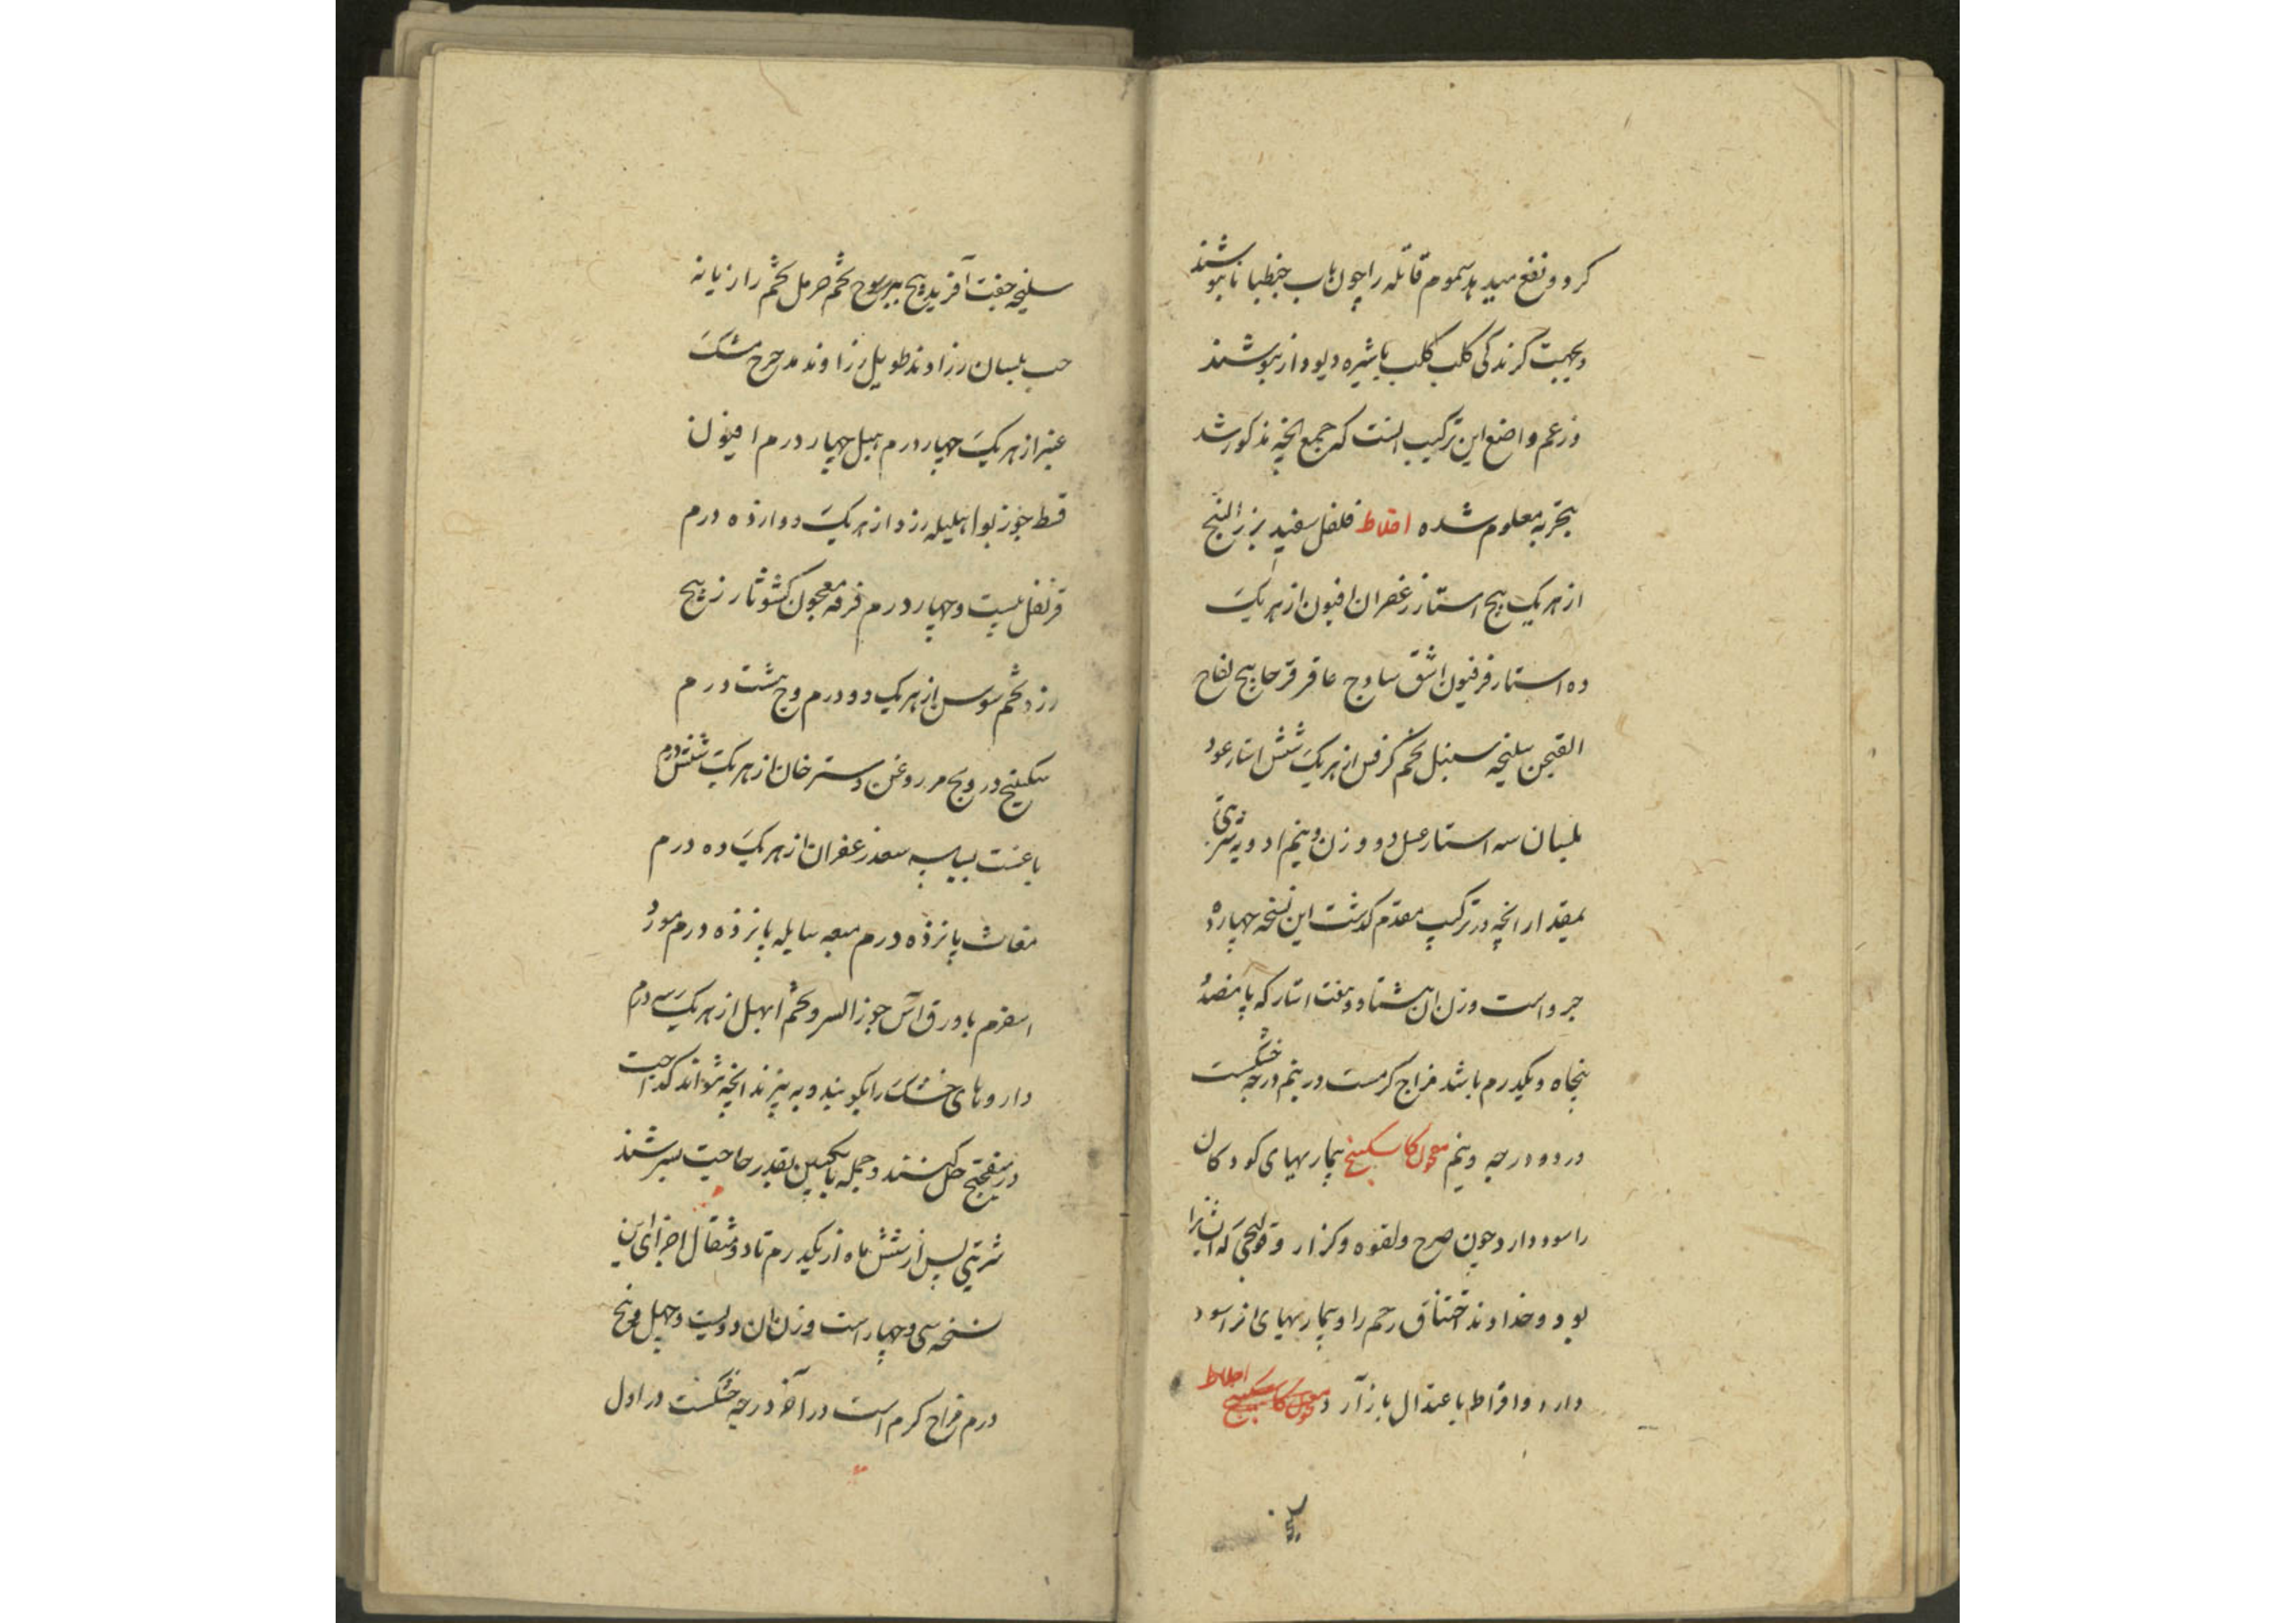 کرد و نفع میدهد سموم قاتله را چون باب جنطیانا بنوشند
و بجهت گزندگی کلب کلب با شیره دیودار بنوشند
و زعم واضع این ترکیب انست که جمع انچه مذکور شد
بتجربه معلوم شده اخلاط فلفل سفید بزر البنج
از هر یک پنج استار زعفران افیون از هر یک
ده استار فرفیون اشق ساذج عاقرقرحا بیخ لفاح
سلیخه سنبل تخم کرفس از هر یک شش استار عود
بلسان سه استار عسل دو وزن و نیم ادویه شربتی
بمقدار انچه در ترکیب مقدم گذشت این نسخه چهارده
جزو است وزن ان هشتاد و هفت استار که پانصد و
پنجاه و یکدرم باشد مزاج گرمست در نیم درجه خشکست
در دو درجه و نیم معجون کاسکبینج بیماریهای کودکان
را سود دارد چون صرع و لقوه و کزاز و قولنجی که ایشانرا
بود و خداوند اختناق رحم را و بیماریهای انرا سود
دارد و افراط باعتدال باز آرد اخلاط
سلیخه جفت آفرید تخم حرمل تخم رازیانه
حب بلسان رزاوند طویل رزاوند مدحرج مشک
عنبر از هر یک چهار درم هیل چهار درم افیون
قسط جوز بوا هلیله زرد از هر یک دوازده درم
قرنفل بیست و چهار درم قرفه معجون کشوثا
زرد تخم سوسن از هر یک دو درم وج هشت درم
سکبینج درونج مر روغن از هر یک شش درم
بسباسه سعد زعفران از هر یک ده درم
مغاث پانزده درم میعه سایله پانزده درم مورد
اسفرم یا ورق آس جوز السرو تخم ابهل از هر یک سه درم
داروهای خشک را بکوبند و به بیزند انچه بتواند گداخت
در میفختج حل کنند و جمله بانگبین بقدر حاجت بسرشند
شربتی پس از شش ماه از یکدرم تا دو مثقال اجزای این
نسخه سی و چهار است وزن ان دویست و چهل و پنج
درم مزاج گرم است در آخر درجه خشکست در اول